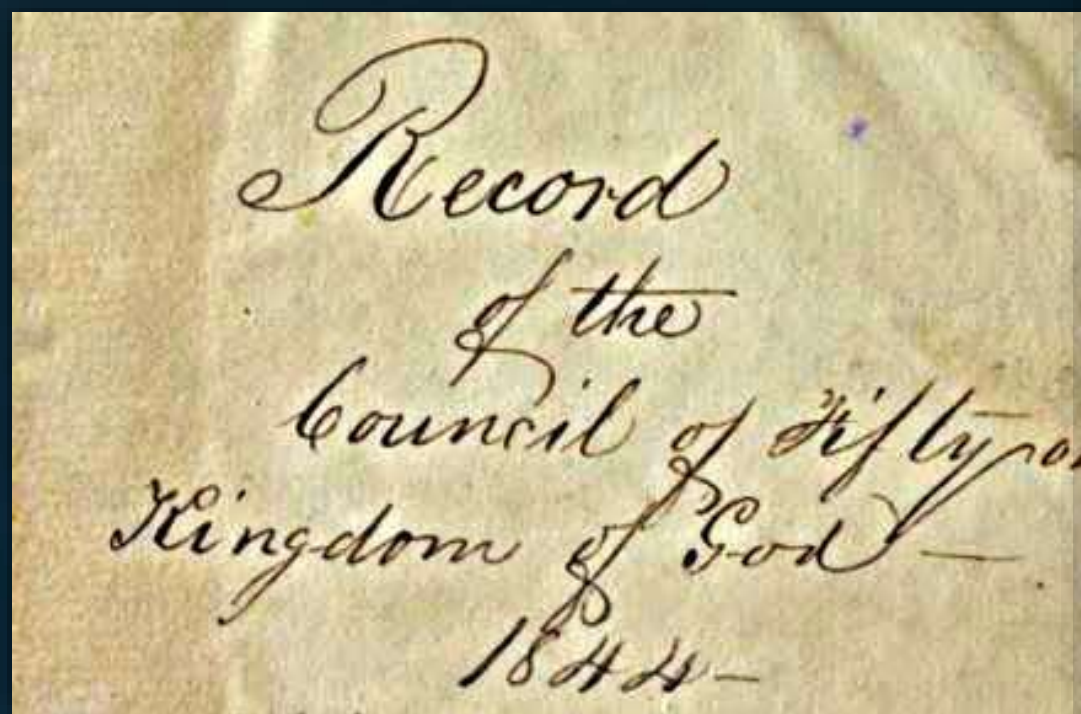 Record
of the
Council of Fifty or
Kingdom of God —
1844 —